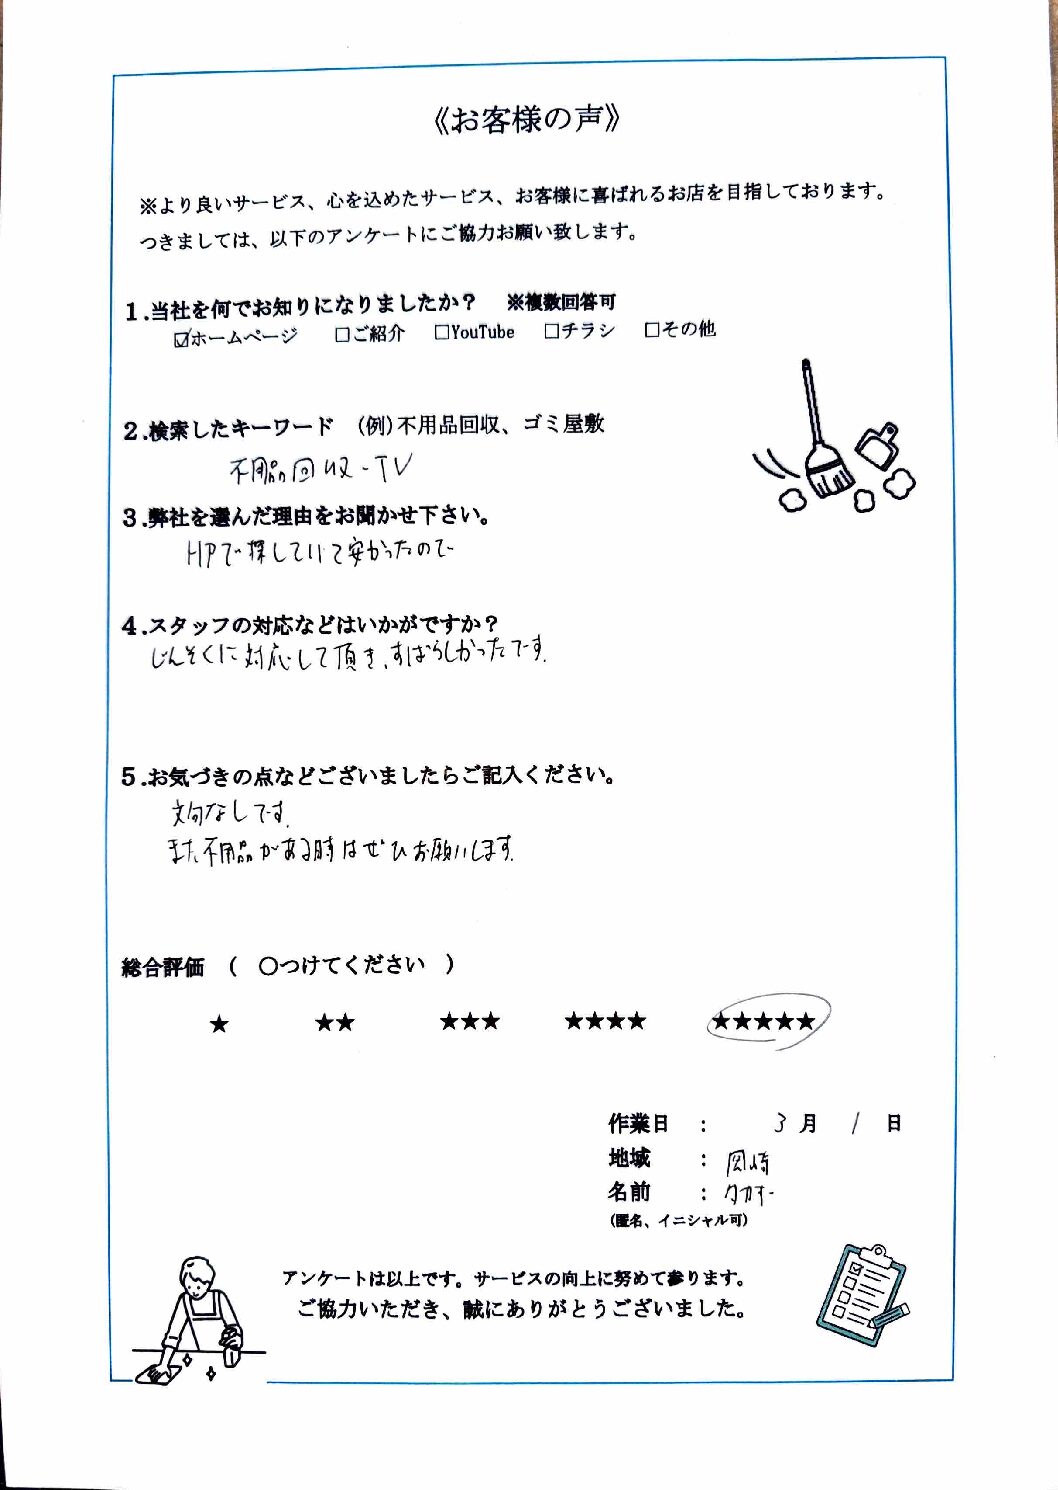 《お客様の声》
※より良いサービス、心を込めたサービス、お客様に喜ばれるお店を目指しております。
つきましては、以下のアンケートにご協力お願い致します。
１.当社を何でお知りになりましたか？　※複数回答可
☑ホームページ　□ご紹介　□YouTube　□チラシ　□その他
２.検索したキーワード　（例）不用品回収、ゴミ屋敷
不用品回収-TV
３.弊社を選んだ理由をお聞かせ下さい。
HPで探していて安かったので
４.スタッフの対応などはいかがですか？
じんそくに対応して頂き、すばらしかったです。
５.お気づきの点などございましたらご記入ください。
文句なしです。
また不用品がある時はぜひお願いします。
総合評価　（　〇つけてください　）
★　★★　★★★　★★★★　★★★★★
作業日　：　3月　1日
地域　：　岡崎
名前　：　タカオー
（匿名、イニシャル可）
アンケートは以上です。サービスの向上に努めて参ります。
ご協力いただき、誠にありがとうございました。